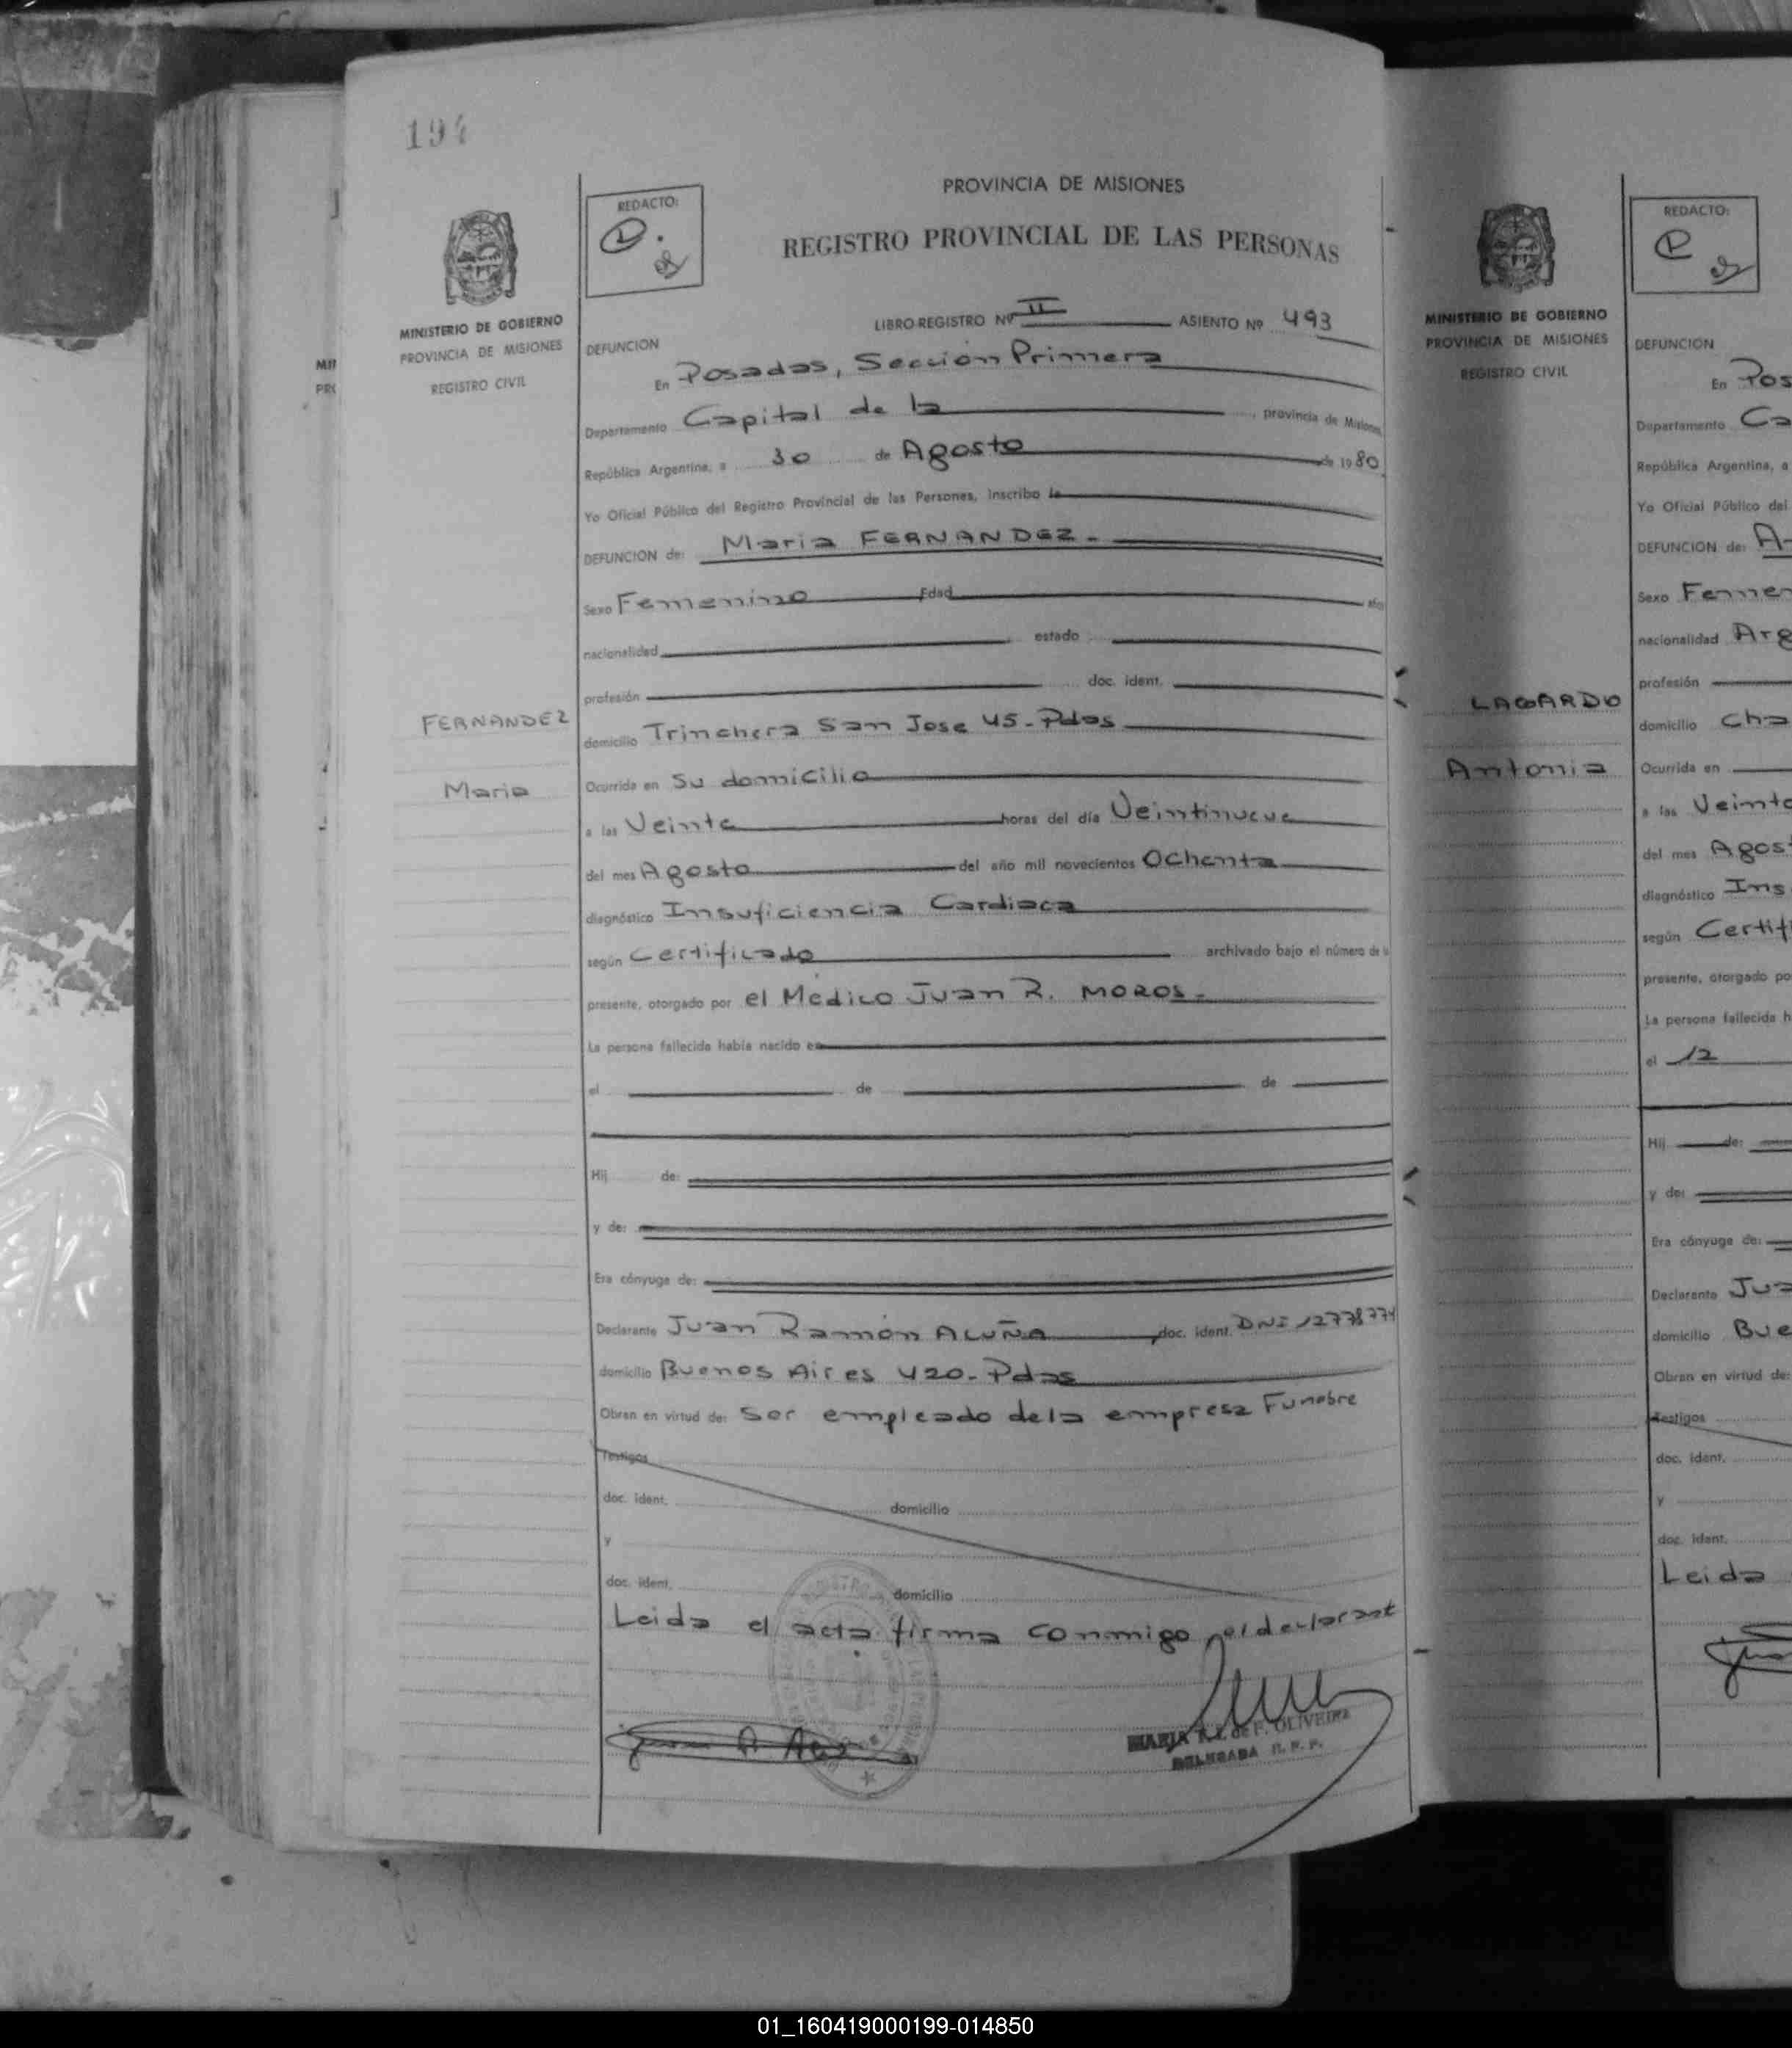 194
PROVINCIA DE MISIONES
REGISTRO PROVINCIAL DE LAS PERSONAS
REDACTO:
MINISTERIO DE GOBIERNO
PROVINCIA DE MISIONES
REGISTRO CIVIL
LIBRO-REGISTRO Nº II ASIENTO Nº 493
DEFUNCION
En Posadas, Sección Primera
Departamento Capital de la provincia de Misiones,
República Argentina, a 30 de Agosto de 1980
Yo Oficial Público del Registro Provincial de las Persones, inscribo la
DEFUNCION de: Maria FERNANDEZ.-
Sexo Femenino Edad año
nacionalidad estado
profesión doc. ident.
FERNANDEZ
Maria
domicilio Trinchera San Jose 45-Pdas
Ocurrida en Su domicilio
a las Veinte horas del día Veintinueve
del mes Agosto del año mil novecientos Ochenta
diagnóstico Insuficiencia Cardiaca
según Certificado archivado bajo el número de la
presente, otorgado por el Médico Juan R. MOROS.-
La persona fallecida había nacido en
el de de
Hij de:
y de:
Era cónyuge de:
Declarante Juan Ramón ACUÑA, doc. ident. DNI 12778774
domicilio Buenos Aires 420-Pdas
Obran en virtud de: Ser empleado dela empresa Funebre
Testigos
doc. ident. domicilio
y
doc. ident. domicilio
Leida el acta firma conmigo el declarant
MARIA de F. OLIVEIRA
DELEGADA R. P. P.
REDACTO:
MINISTERIO DE GOBIERNO
PROVINCIA DE MISIONES
REGISTRO CIVIL
LAGARDO
Antonia
DEFUNCION
En Pos
Departamento Ca
República Argentina, a
Yo Oficial Público del
DEFUNCION de: A
Sexo Femen
nacionalidad Arg
profesión
domicilio Cha
Ocurrida en
a las Veinte
del mes Agost
diagnóstico Ins
según Certifi
presente, otorgado po
La persona fallecida h
el 12
Hij de:
y de:
Era cónyuge de:
Declarante Jua
domicilio Bue
Obran en virtud de:
Testigos
doc. ident.
y
doc. ident.
Leida
01_160419000199-014850